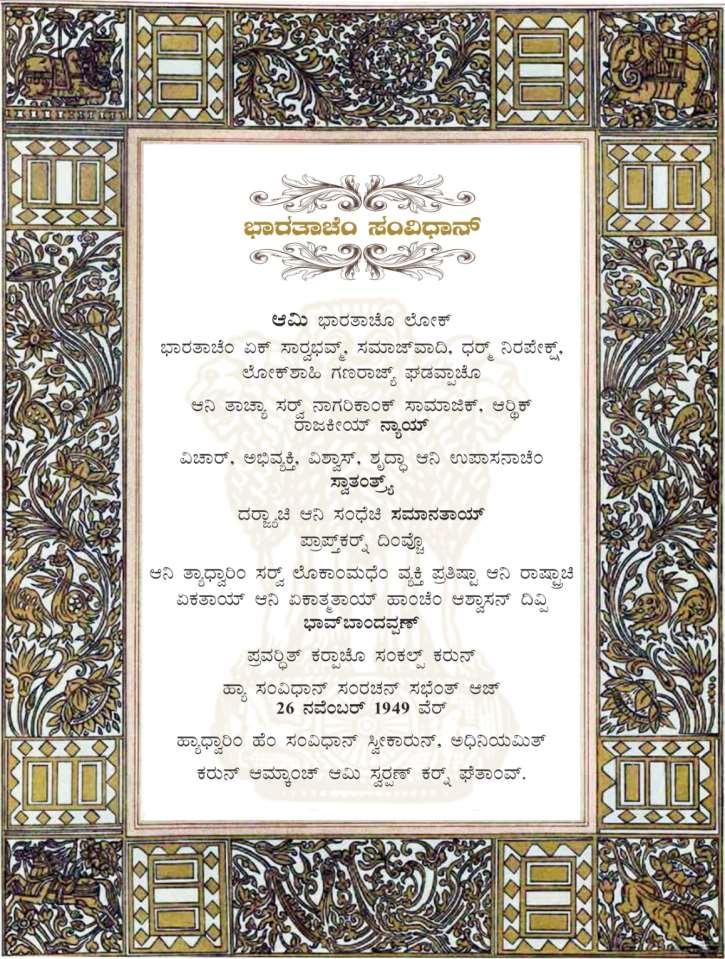 ಭಾರತಾಚೆಂ ಸಂವಿಧಾನ್
ಆಮಿ ಭಾರತಾಚೊ ಲೋಕ್
ಭಾರತಾಚೆಂ ಏಕ್ ಸಾರ‍್ವಭವ್ಮ್, ಸಮಾಜ್‌ವಾದಿ, ಧರ‍್ಮ್ ನಿರಪೇಕ್ಷ್,
ಲೋಕ್‌ಶಾಹಿ ಗಣರಾಜ್ಯ್ ಘಡವ್ಪಾಚೊ
ಆನಿ ತಾಚ್ಯಾ ಸರ‍್ವ್ ನಾಗರಿಕಾಂಕ್ ಸಾಮಾಜಿಕ್, ಆರ‍್ಥಿಕ್
ರಾಜಕೀಯ್ ನ್ಯಾಯ್
ವಿಚಾರ್, ಅಭಿವ್ಯಕ್ತಿ, ವಿಶ್ವಾಸ್, ಶೃದ್ಧಾ ಆನಿ ಉಪಾಸನಾಚೆಂ
ಸ್ವಾತಂತ್ರ್ಯ್
ದರ‍್ಜ್ಯಾಚಿ ಆನಿ ಸಂಧೆಚಿ ಸಮಾನತಾಯ್
ಪ್ರಾಪ್ತ್‌ಕರ‍್ನ್ ದಿಂವ್ಚೊ
ಆನಿ ತ್ಯಾಧ್ವಾರಿಂ ಸರ‍್ವ್ ಲೊಕಾಂಮಧೆಂ ವ್ಯಕ್ತಿ ಪ್ರತಿಷ್ಟಾ ಆನಿ ರಾಷ್ಟ್ರಾಚಿ
ಏಕತಾಯ್ ಆನಿ ಏಕಾತ್ಮತಾಯ್ ಹಾಂಚೆಂ ಆಶ್ವಾಸನ್ ದಿವ್ಪಿ
ಭಾವ್‌ಬಾಂದವ್ಪಣ್
ಪ್ರವರ‍್ಧಿತ್ ಕರ‍್ಪಾಚೊ ಸಂಕಲ್ಪ್ ಕರುನ್
ಹ್ಯಾ ಸಂವಿಧಾನ್ ಸಂರಚನ್ ಸಭೆಂತ್ ಆಜ್
26 ನವೆಂಬರ್ 1949 ವೆರ್
ಹ್ಯಾಧ್ವಾರಿಂ ಹೆಂ ಸಂವಿಧಾನ್ ಸ್ವೀಕಾರುನ್, ಅಧಿನಿಯಮಿತ್
ಕರುನ್ ಆಮ್ಕಾಂಚ್ ಆಮಿ ಸ್ವರ‍್ಪಣ್ ಕರ‍್ನ್ ಘೆತಾಂವ್.